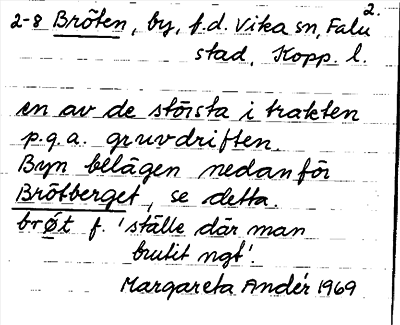 2.
2-8 Bröten, by, f.d. Vika sn, Falu
stad, Kopp. l.
en av de största i trakten
p.g.a. gruvdriften.
Byn belägen nedanför
Brötberget, se detta.
brøt f. 'ställe där man
brutit ngt'.
Margareta Andér 1969